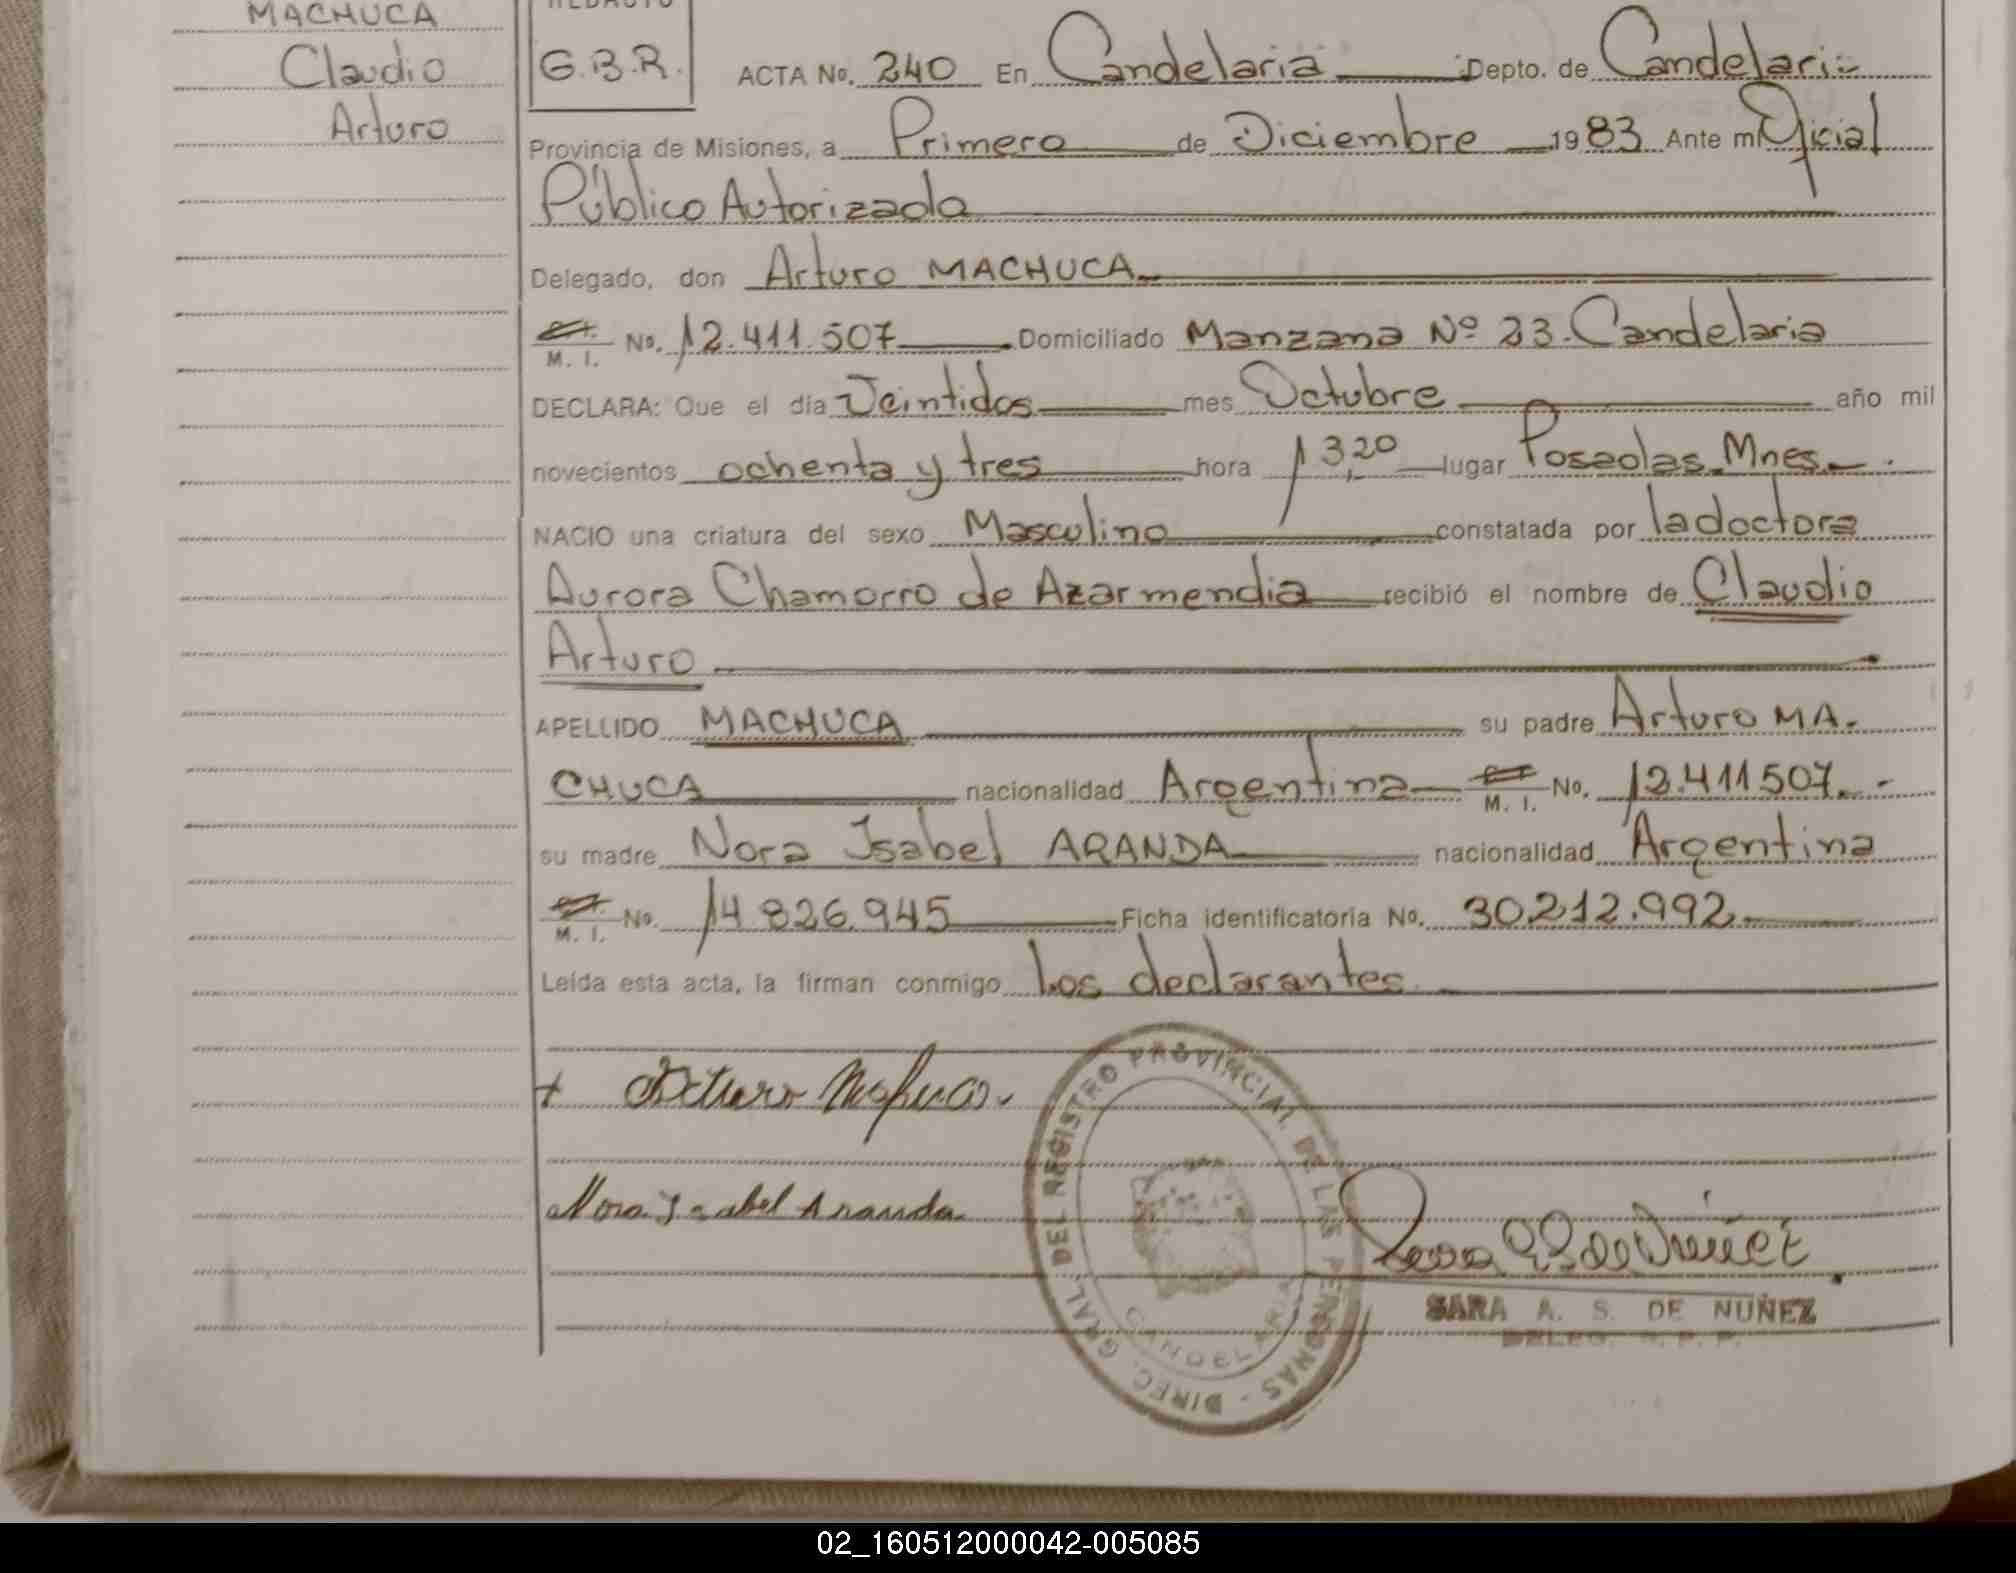 MACHUCA
Claudio
Arturo
REDACTO
G.B.R.
ACTA No. 240 En Candelaria Depto. de Candelaria
Provincia de Misiones, a Primero de Diciembre 1983 Ante mi Oficial
Público Autorizada
Delegado, don Arturo MACHUCA
M. I. No. 12.411.507 Domiciliado Manzana Nº 23. Candelaria
DECLARA: Que el día Veintidos mes Octubre año mil
novecientos ochenta y tres hora 13,20 lugar Posadas Mnes.
NACIO una criatura del sexo Masculino constatada por la doctora
Aurora Chamorro de Azarmendia recibió el nombre de Claudio
Arturo
APELLIDO MACHUCA su padre Arturo MA-
CHUCA nacionalidad Argentina M. I. No. 12.411507.-
su madre Nora Isabel ARANDA nacionalidad Argentina
M. I. No. 14.826.945 Ficha identificatoria No. 30.212.992
Leída esta acta, la firman conmigo Los declarantes.
+ Arturo Machuca
Nora Isabel Aranda
DIREC. GRAL. DEL REGISTRO PROVINCIAL DE LAS PERSONAS -
CANDELARIA
Sara A. S. de Nuñez
SARA A. S. DE NUÑEZ
DELEG. R. P. P.
02_160512000042-005085